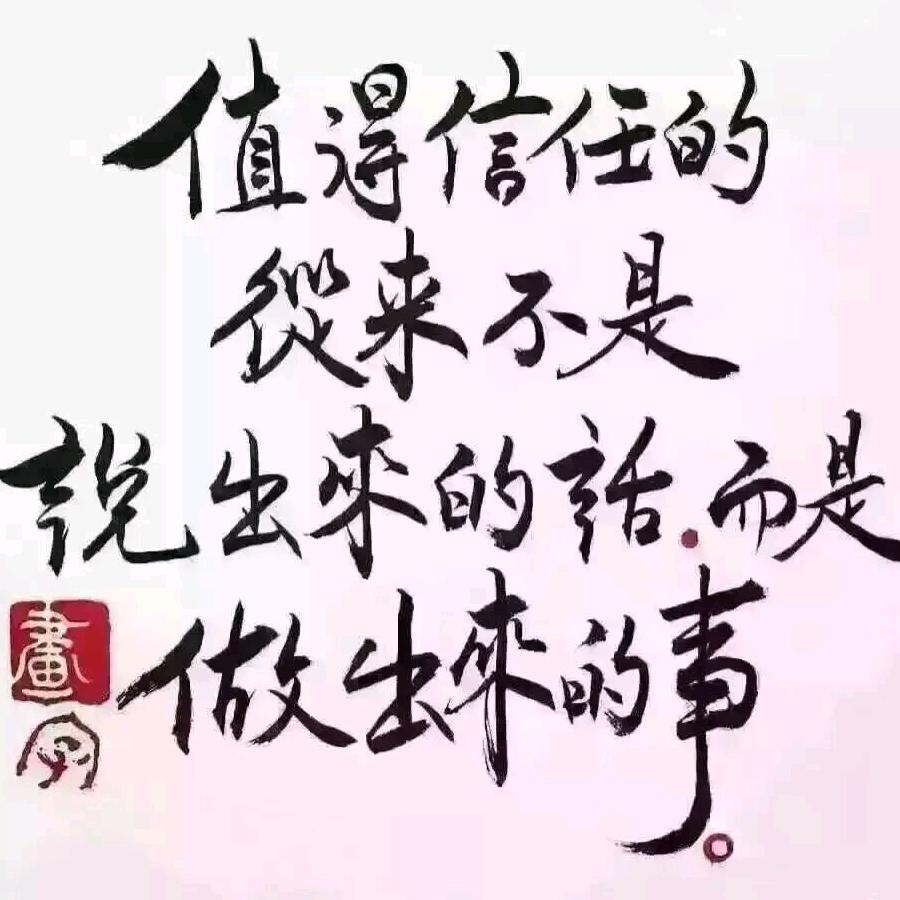 值得信任的
從来不是
說出來的話.而是
做出來的事。
畫
字